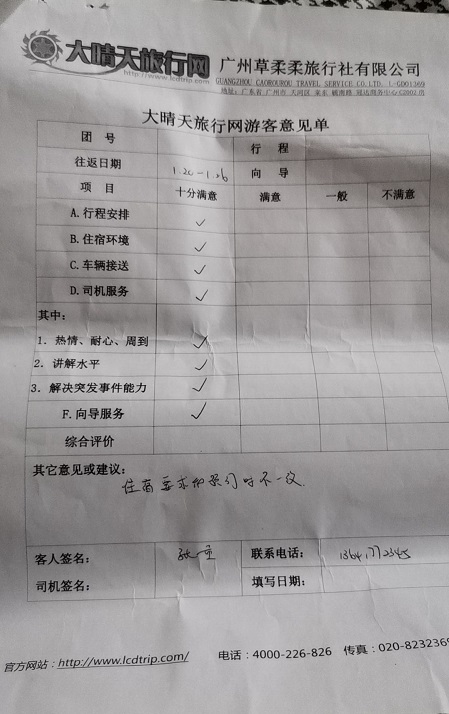 大晴天旅行网 广州草柔柔旅行社有限公司
http://www.lcdtrip.com/ GUANGZHOU CAOROUROU TRAVEL SERVICE CO.LTD. L-GD01369
地址:广东省 广州市 天河区
大晴天旅行网游客意见单
团 号 行 程
往返日期 1.20-1.26 向 导
项 目 十分满意 满意 一般 不满意
A.行程安排 ✓
B.住宿环境 ✓
C.车辆接送 ✓
D.司机服务 ✓
其中:
1. 热情、耐心、周到 ✓
2. 讲解水平 ✓
3. 解决突发事件能力 ✓
F.向导服务 ✓
综合评价
其它意见或建议:
住宿要求和预订时不一致
客人签名: 联系电话:
司机签名: 填写日期:
官方网站:http://www.lcdtrip.com/ 电话:4000-226-826 传真:020-8232369